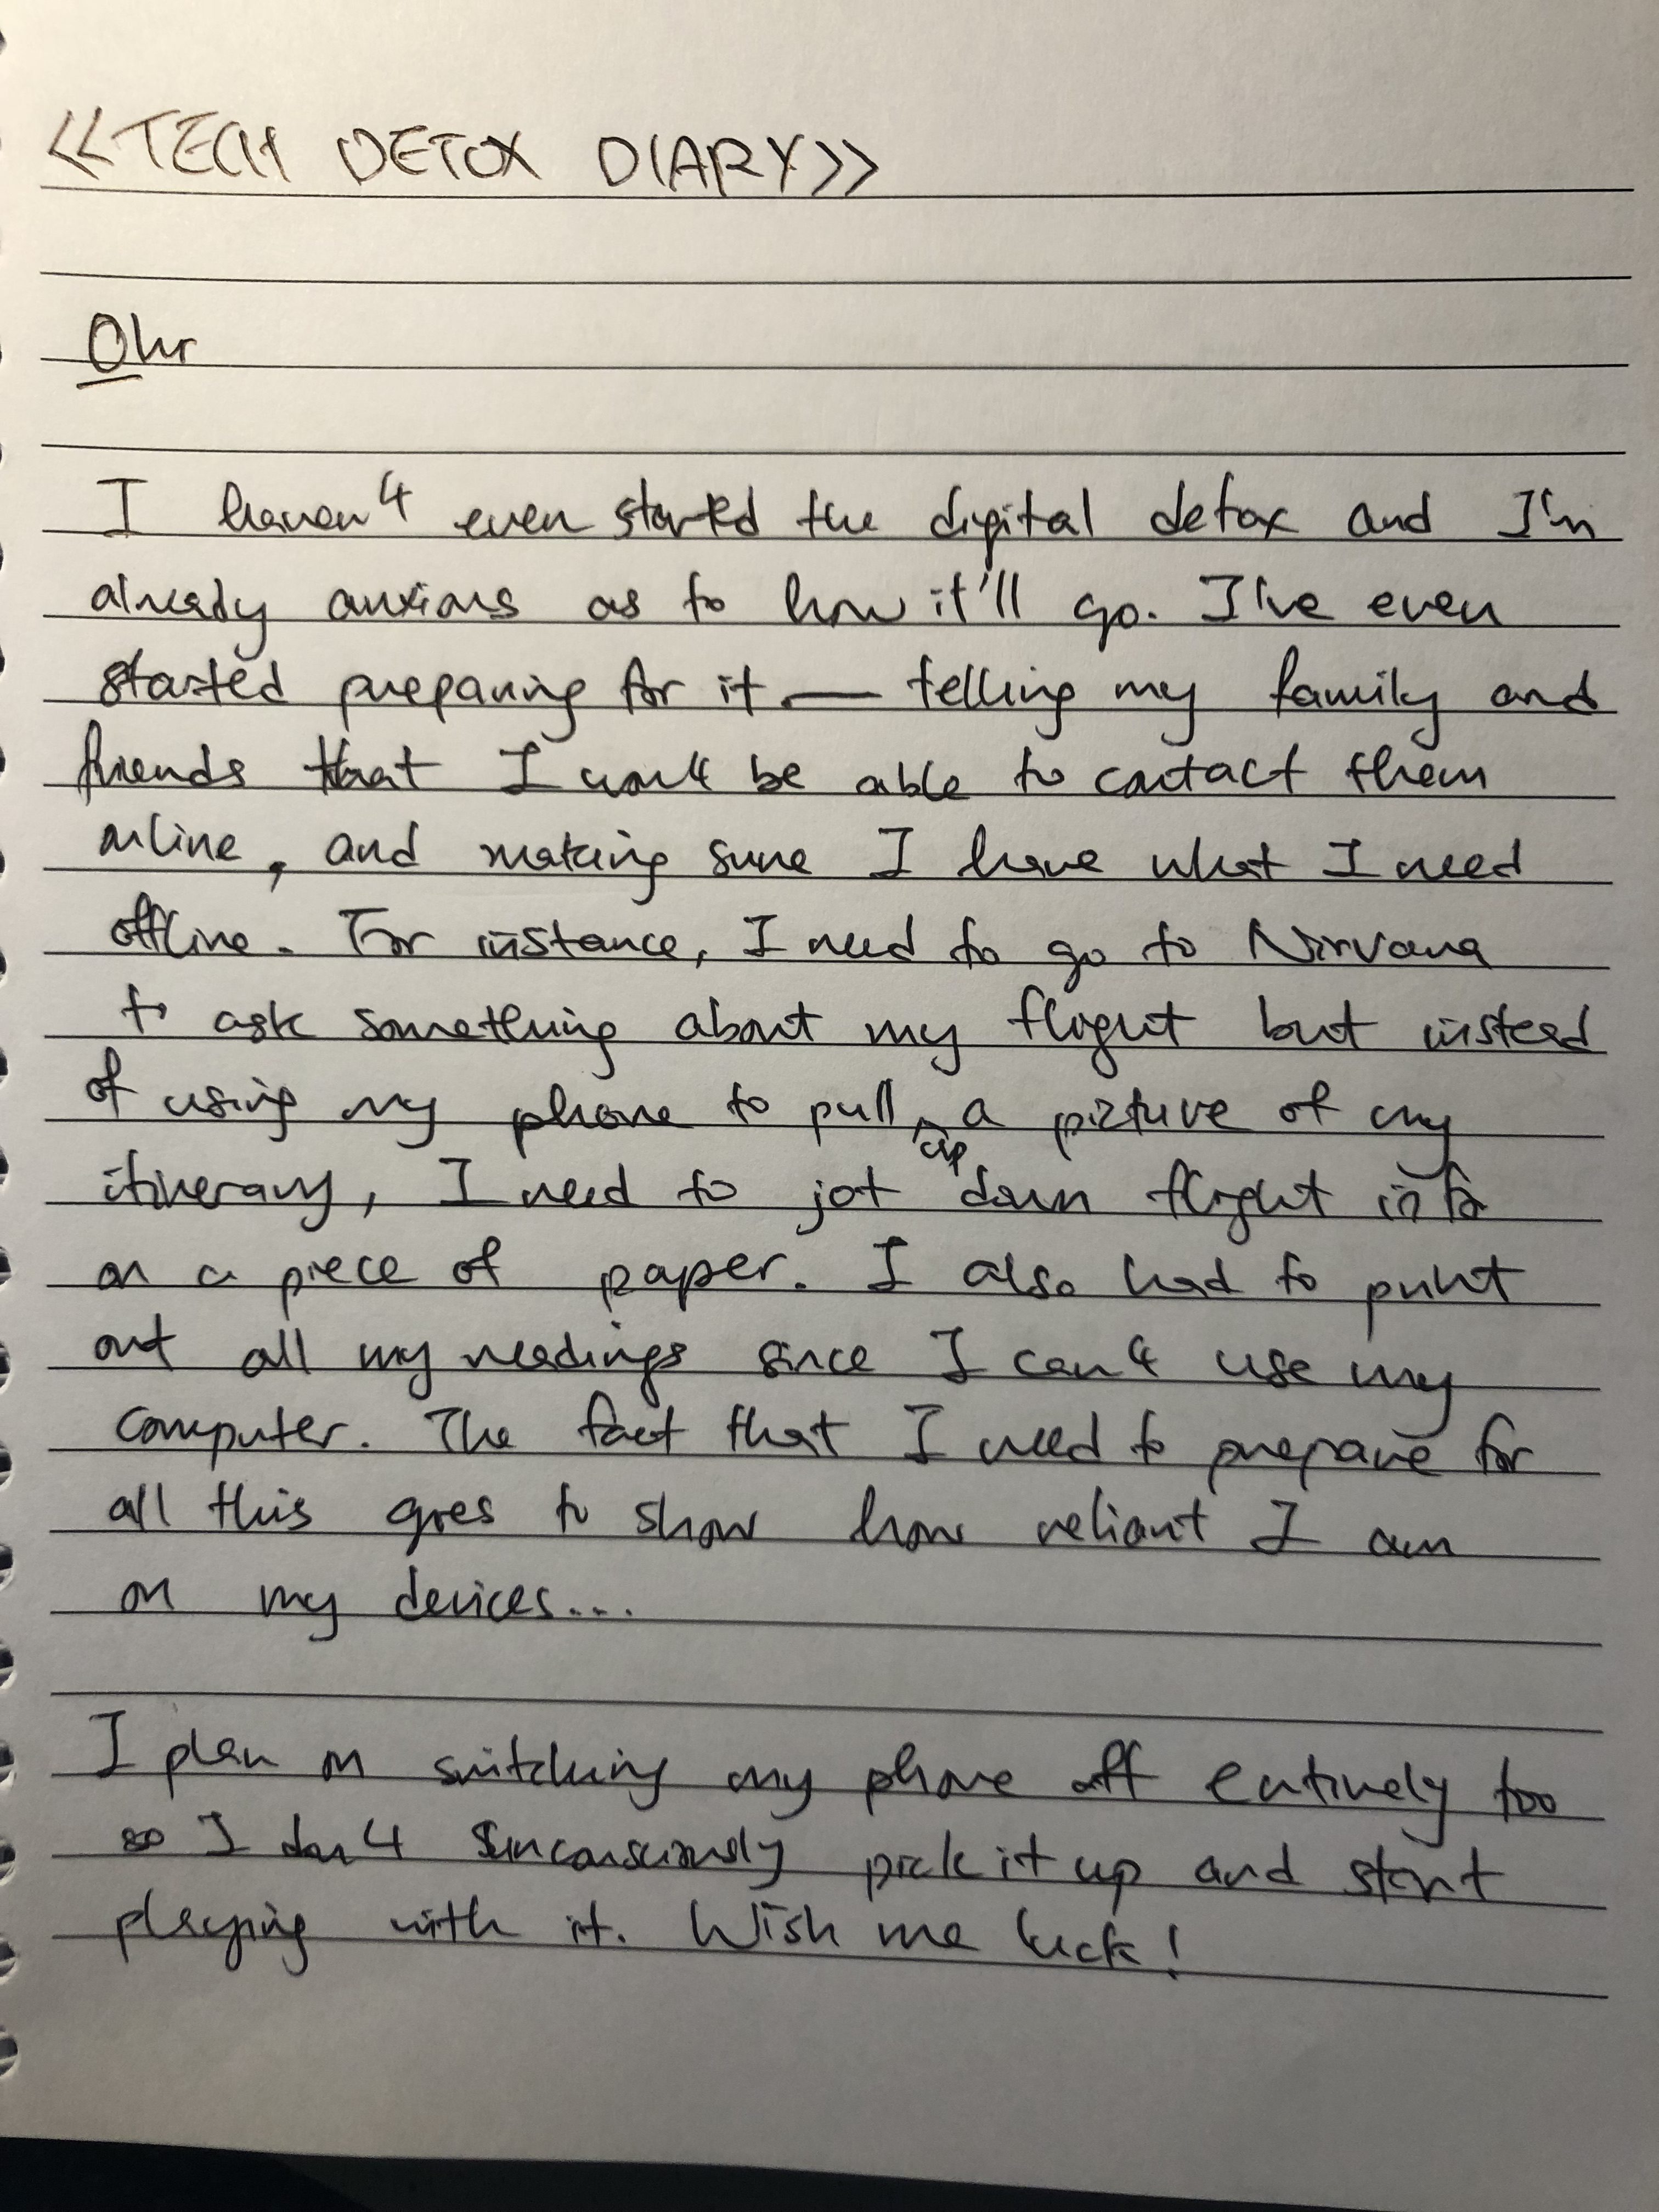 <<TECH DETOX DIARY>>
0hr
I haven't even started the digital detox and I'm
already anxious as to how it'll go. I've even
started preparing for it — telling my family and
friends that I won't be able to contact them
online, and making sure I have what I need
offline. For instance, I need to go to Nirvana
to ask something about my flight but instead
of using my phone to pull up a picture of my
itinerary, I need to jot down flight info
on a piece of paper. I also had to print
out all my readings since I can't use my
computer. The fact that I need to prepare for
all this goes to show how reliant I am
on my devices...
I plan on switching my phone off entirely too
so I don't pick it up and start
playing with it. Wish me luck!